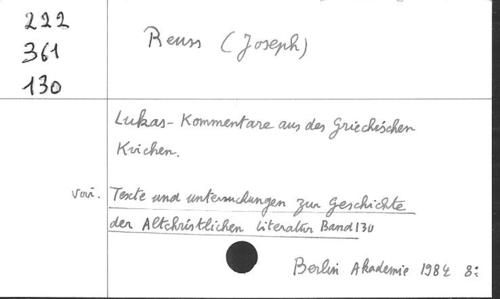 222
361
130
Reuss (Joseph)
Lukas-Kommentare aus des Griechischen
Kvichen.
Texte und untersuchungen zur Geschichte
der Altchristlichen Literatur Band 130
Berlin Akademie 1984 8: